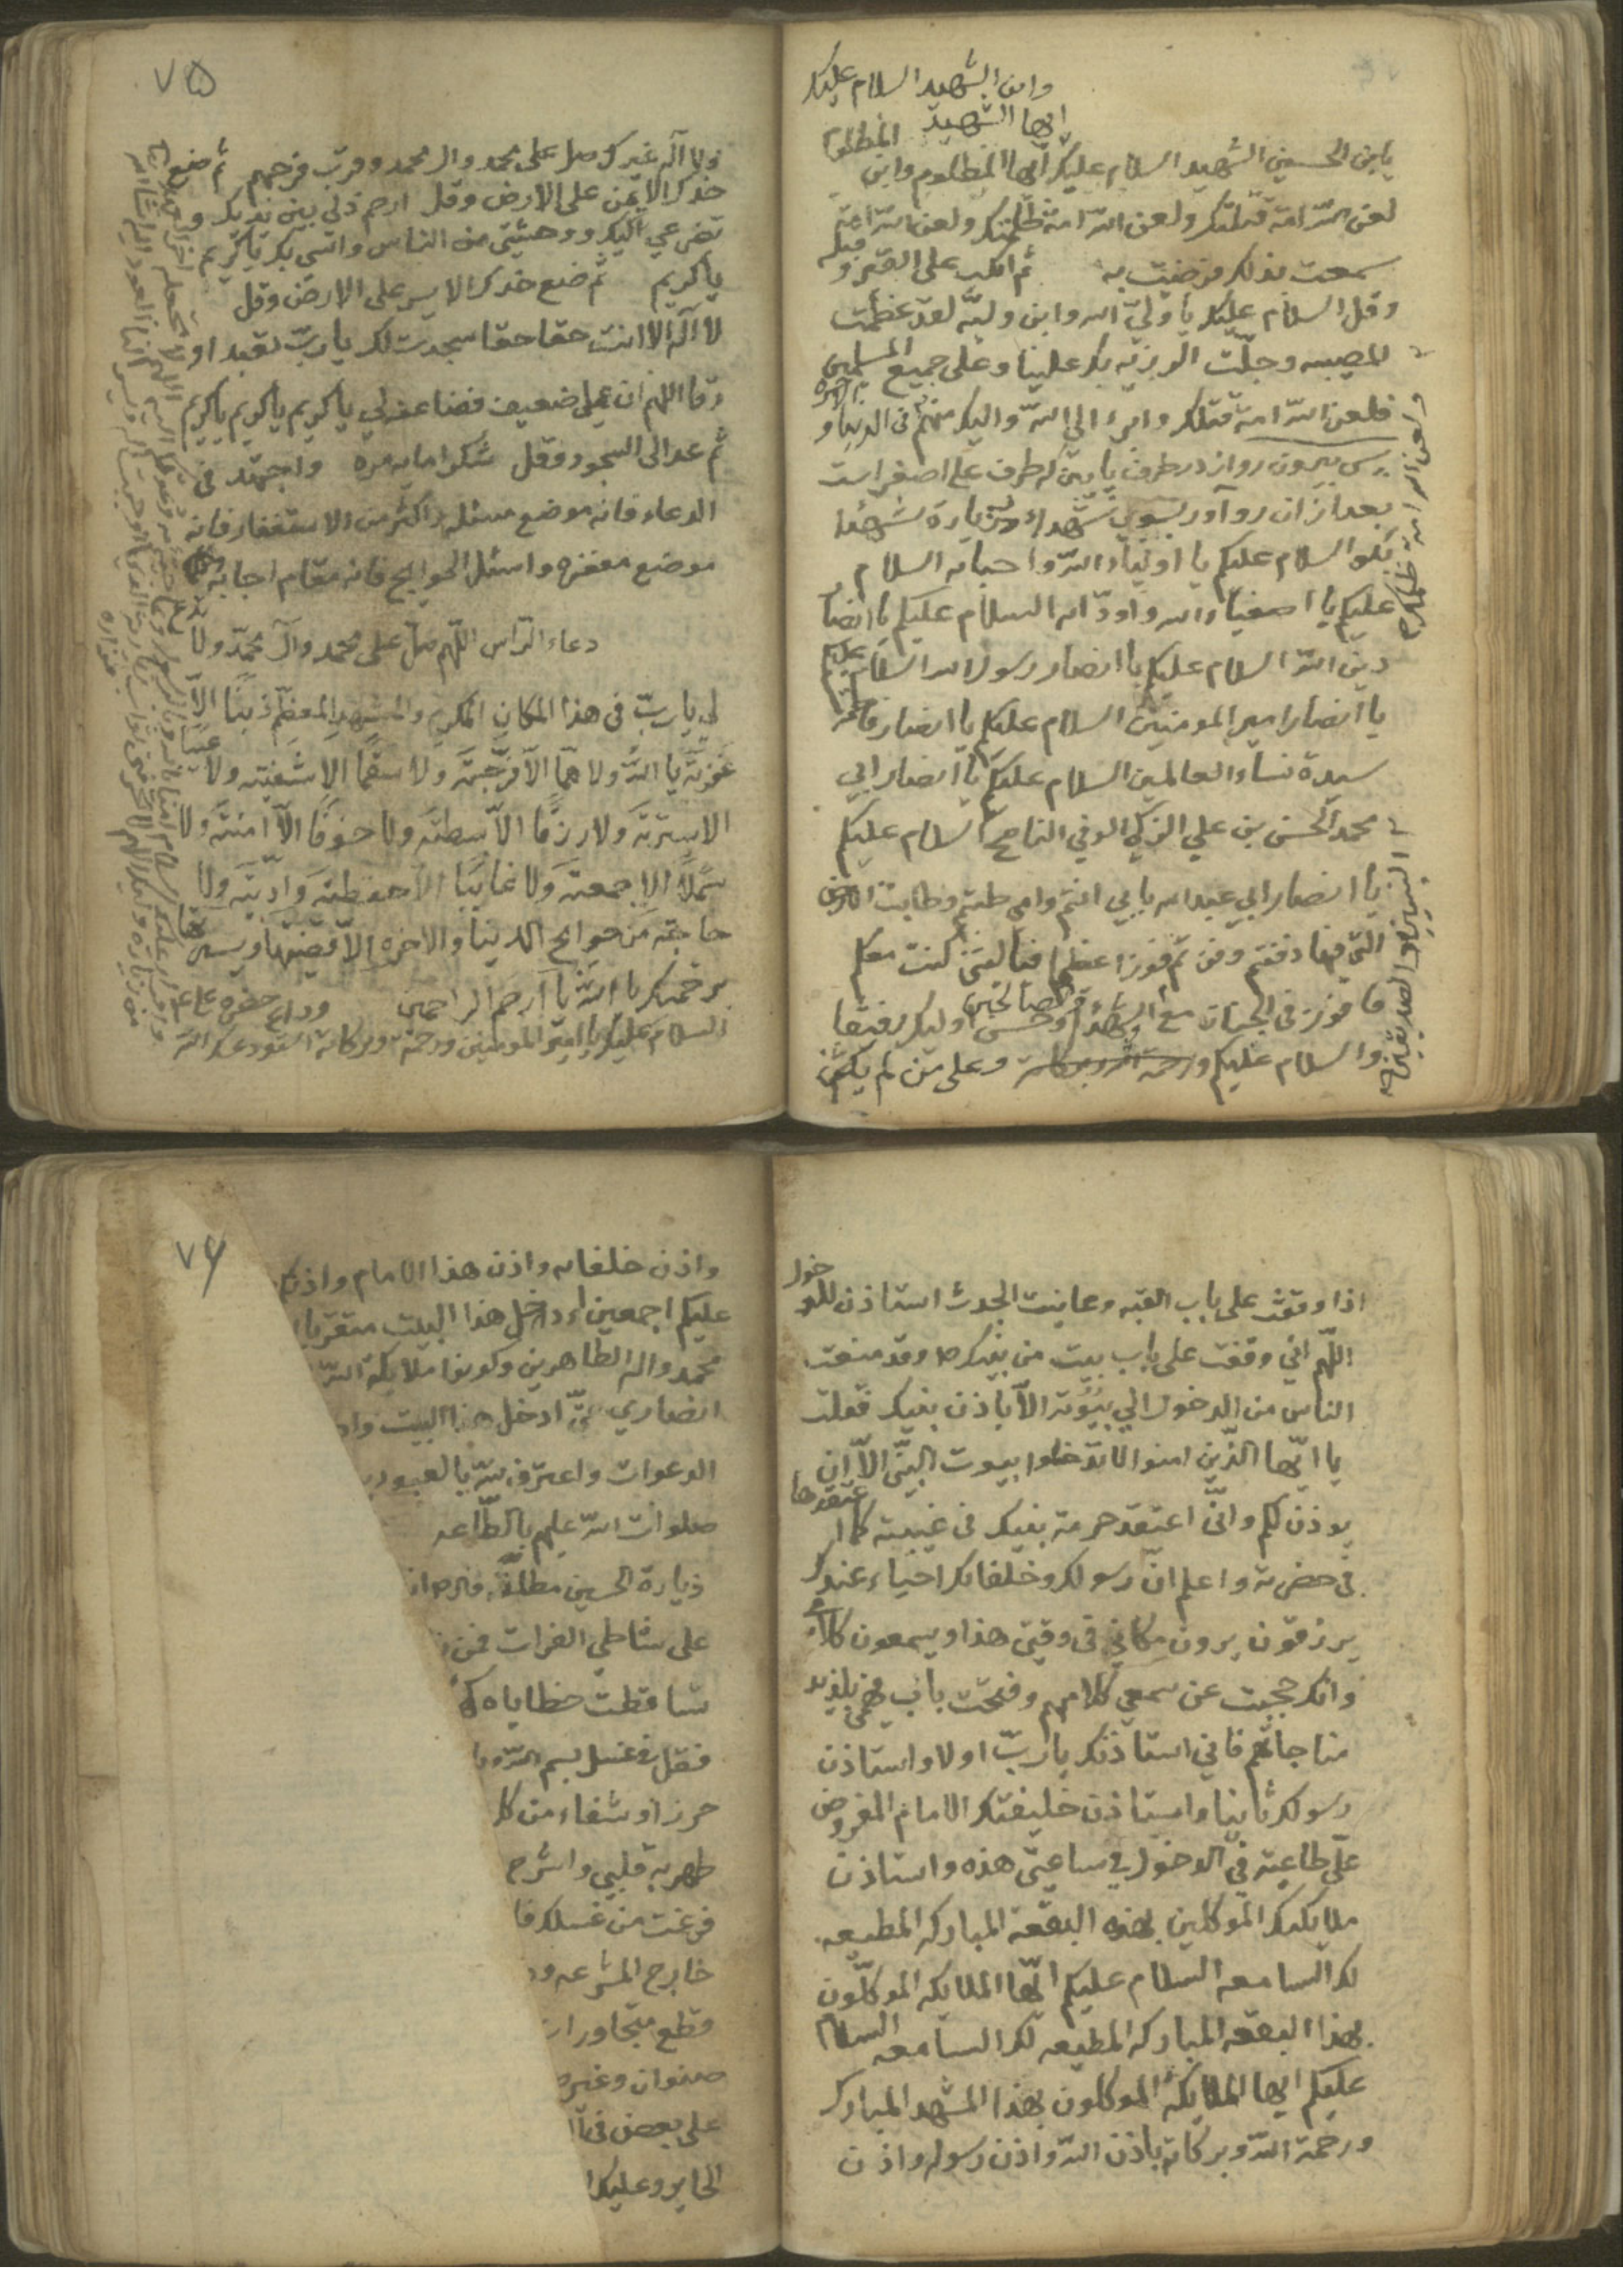 وابن الشهيد السلام عليك
ايها الشهيد
يابن الحسين الشهيد السلام عليك ايها المظلوم وابن المظلوم
لعن الله امة قتلتك ولعن الله امة ظلمتك ولعن الله امة
سمعت بذلك فرضيت به ثم انكب على القبر و قبله
وقل السلام عليك يا ولي الله وابن وليه لقد عظمت
المصيبه وجلت الرزيه بك علينا وعلى جميع المسلمين
فلعن الله امة قتلتك وابرء الى الله واليك منهم فى الدنيا و الاخره
پس بيرون رو از در طرف پايين كه طرف على اصغر است
بعد ازان رو آور بسوى شهداء و زيارة شهدا
بكو السلام عليكم يا اولياء الله واحبائه السلام
عليكم يا اصفياء الله واودائه السلام عليكم يا انصار
دين الله السلام عليكم يا انصار رسول الله السلام عليكم
يا انصار امير المومنين السلام عليكم يا انصار فاطمة
سيدة نساء العالمين السلام عليكم يا انصار ابي
محمد الحسن بن علي الزكي الوفي الناصح السلام عليكم
يا انصار ابي عبد الله بابي انتم وامي طبتم وطابت الارض
التي فيها دفنتم وفزتم فوزا عظيما فياليتني كنت معكم
فافوز فى الجنان مع الشهداء والصالحين وحسن اوليك رفيقا
والسلام عليكم ورحمة الله وبركاته وعلى من لم يكن
ولعن الله امة ظلمتك
النبيين والصديقين
٧۵
ولا اله غيرك صل على محمد وال محمد وقرب فرجهم ثم ضع
خدك الايمن على الارض وقل ارحم ذلي بين يديك و
تضرعي اليك ووحشتي من الناس وانسى بك يا كريم
يا كريم ثم ضع خدك الايسر على الارض وقل
لا اله الا انت حقا حقا سجدت لك يا رب تعبدا و
رقا اللهم ان عملي ضعيف فضاعفه لي يا كريم يا كريم يا كريم
ثم عد الى السجود وقل شكرا مايه مره واجتهد فى
الدعاء فانه موضع مسئله واكثر من الاستغفار فانه
موضع مغفره واسئل الحوايج فانه مقام اجابه
دعاء الراس اللهم صل على محمد وآل محمد ولا تدع
لي يا رب فى هذا المكان المكرم والمشهد المعظم ذنبا الا
غفرته يا الله ولا هما الا فرجته ولا سقما الا شفيته ولا عيبا
الا سترته ولا رزقا الا بسطته ولا خوفا الا امنته ولا
شملا الا جمعته ولا غايبا الا حفظته وادنيته ولا
حاجة من حوايج الدنيا والاخره الا قضيتها ويسرتها
برحمتك يا الله يا ارحم الراحمين وداع حضره
السلام عليك يا امير المومنين ورحمة وبركاته استودعك الله
اذا وقفت على باب القبه وعاينت الجدث استاذن للدخول
اللهم اني وقفت على باب بيت من نبيك ص وقد منعت
الناس من الدخول الي بيوته الا باذن نبيك فقلت
يا ايها الذين امنوا لا تدخلوا بيوت النبي الا ان
يوذن لكم واني اعتقد حرمة نبيك فى غيبته كما اعتقدها
فى حضرته واعلم ان رسولك وخلفائك احياء عندك
يرزقون يرون مكاني فى وقتي هذا ويسمعون كلامي
وانك حجبت عن سمعي كلامهم وفتحت باب فهمي بلذيذ
مناجاتهم فاني استاذنك يا رب اولا واستاذن
رسولك ثانيا واستاذن خليفتك الامام المفروض
على طاعته فى الدخول في ساعتي هذه واستاذن
ملايكتك الموكلين بهذه البقعة المباركه المطيعه
لك السامعه السلام عليكم ايها الملايكه الموكلون
بهذا البقعه المباركه المطيعه لك السامعه السلام
عليكم ايها الملايكة الموكلون بهذا المشهد المبارك
ورحمة الله وبركاته باذن الله واذن رسوله واذن
٧۶
واذن خلفائه واذن هذا الامام واذنكم
عليكم اجمعين ادخل هذا البيت متقربا
محمد واله الطاهرين وكونوا ملايكة الله
انصاري حتى ادخل هذا البيت واد
الدعوات واعترف لله بالعبوديه
صلوات الله عليهم بالطاعه
زيارة الحسين مطلقة
على شاطي الفرات فمن
تساقطت خطاياه
فقل فى غسل بسم الله وبا
حرزا وشفاء من كل
طهر به قلبي واشرح
فرغت من غسلك فا
خارج المشرعه
قطع متجاورات
صنوان وغير
على بعض فى
الحاير وعليك